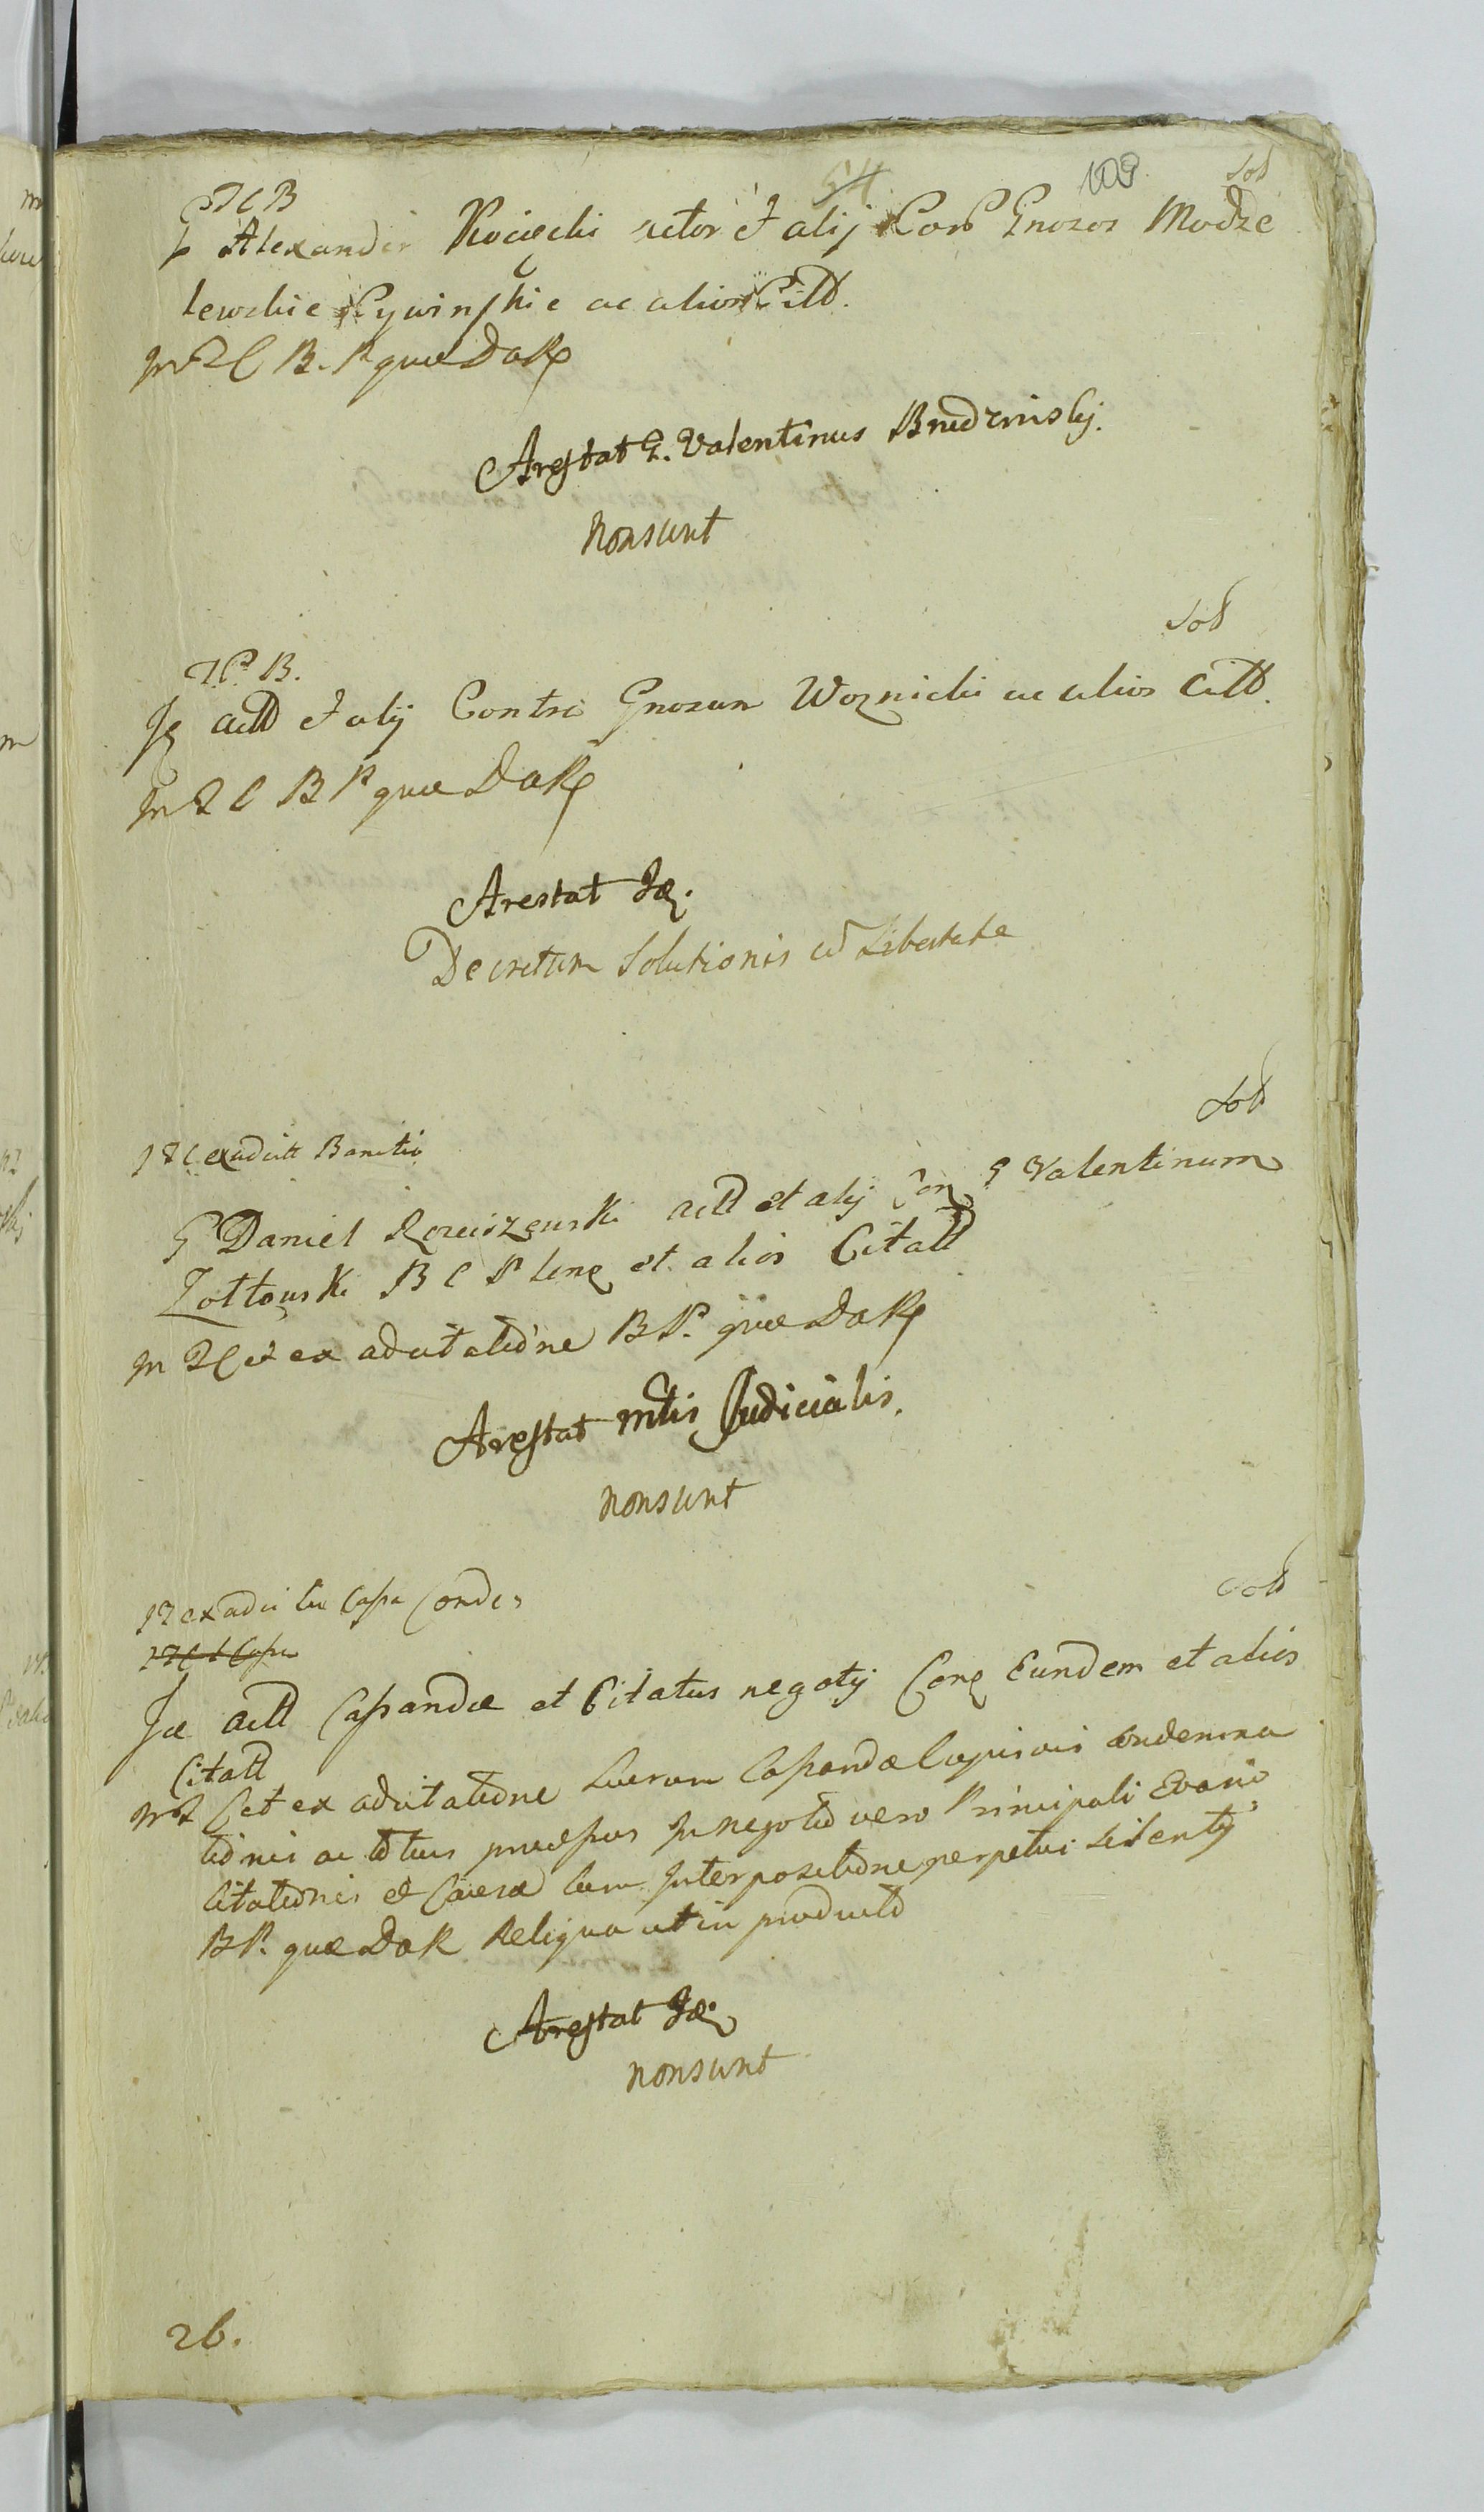 54 109 Sot
J C B
G Alexander Kocięcki actor et alij Con Gnosos Modze
lewskie Cywinskie ac alios Citt.
In J C B. P quae DaR
Arestat G. Valentinus Brudzinskj.
Nonsunt
Sot
J C B.
Jd actt et alij Contra Gnosum Woznicki ac alios Citt.
In J C B P quae DaR
Arestat Id.
Decretum Solutionis cu Libertate
Sott
J C exadcitt Banitio
G Daniel actt et alij Con G Valentinum
Zottowski B C P Cong et alios Citatt
In J C et ex adcitatione B P. quae DaR
Arestat mtis Judicialis.
nonsunt
Sott
exadci Cassa Conde
Id actt Cassandae et Citatus negotij Cong Eundem et alios
Citatt
In J C et ex adcitatione Cassandae condemna
tionis ac In negotio vero Principali Evasio
Citationis et Causae cum Interpositione perpetui silentij
BP. quae DaR Reliqua ut in producto
Arestat Id.
nonsunt
26.